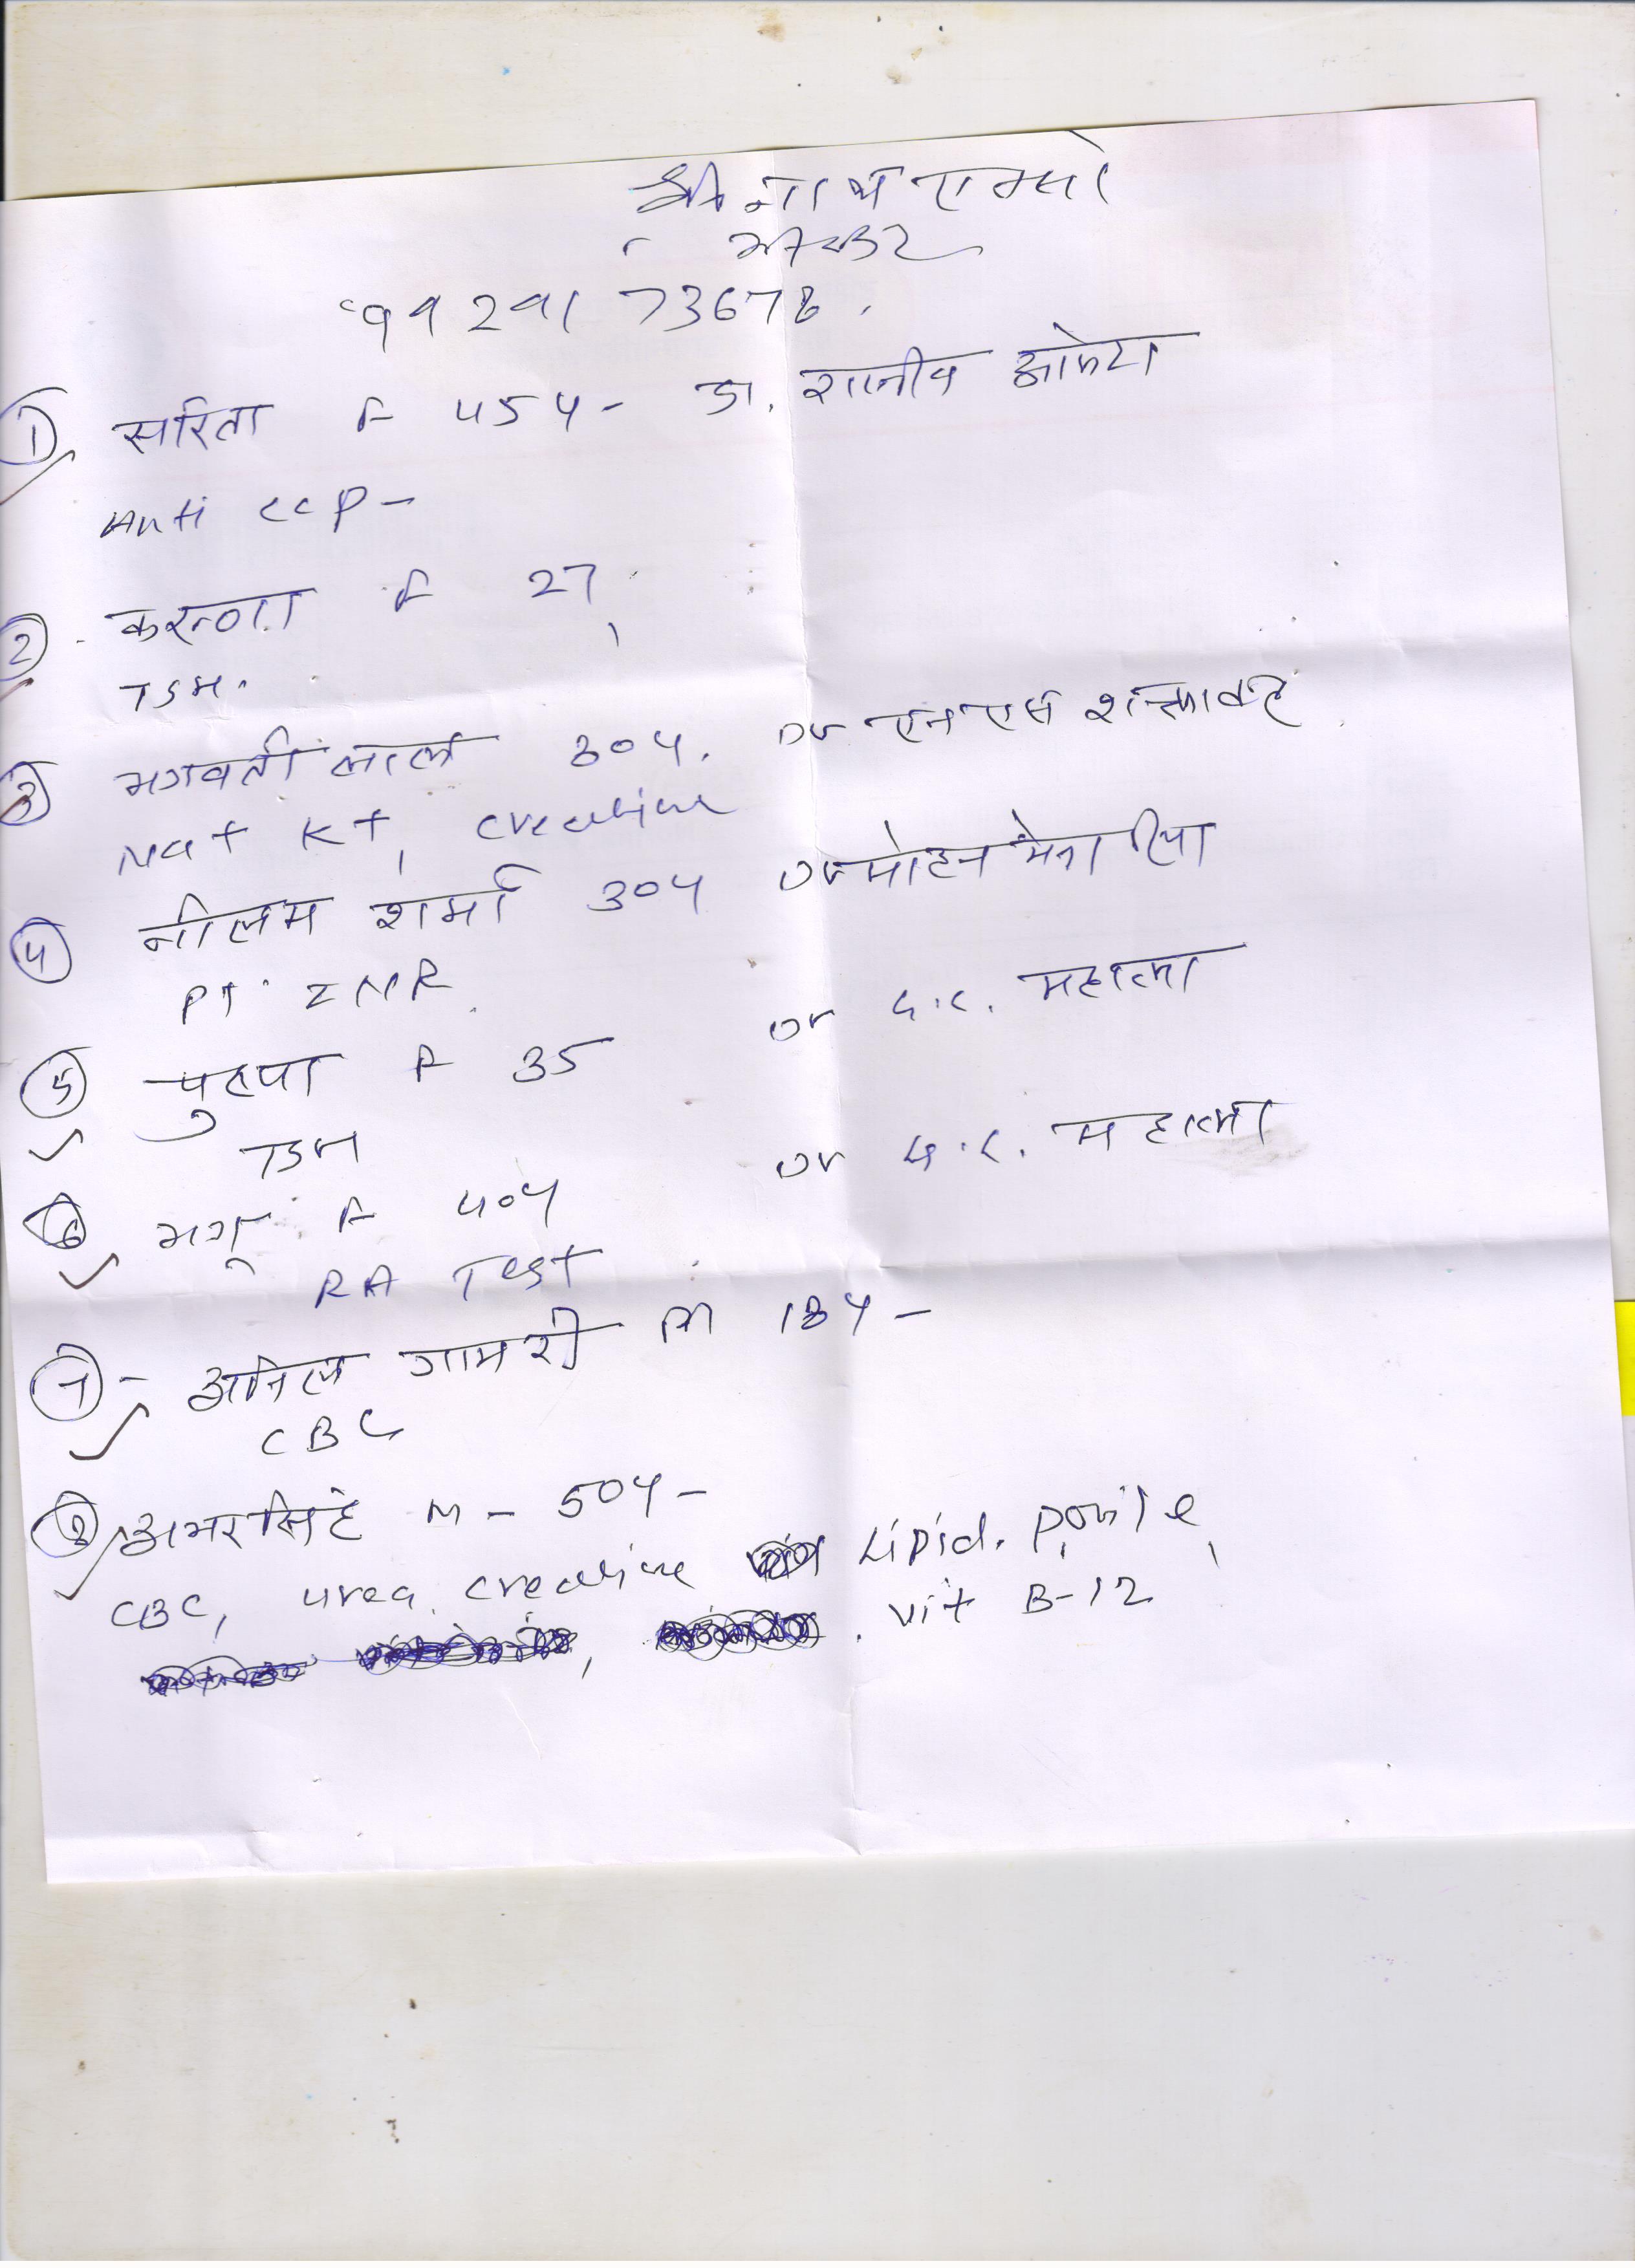 श्री नाथ एक्सरे
भीण्डर
9929173678.
① सरिता F 45Y - डा. राजीव आमेटा
Anti CCP -
② करूणा F 27
TSH.
③ भगवती लाल 30Y. Dr एन एस शक्तावत
Na+ K+, creatine
④ नीलम शर्मा 30Y Dr मोहन मेनारिया
PT INR
⑤ पुष्पा F 35 Dr G.C. महात्मा
TSH
⑥ F 40Y Dr G.C. महात्मा
RA Test
⑦ - अनिल गामरी M 18Y -
CBC
⑧ अमरसिंह M - 50Y -
CBC, urea. creatine Lipid. Porile,
. vit B-12